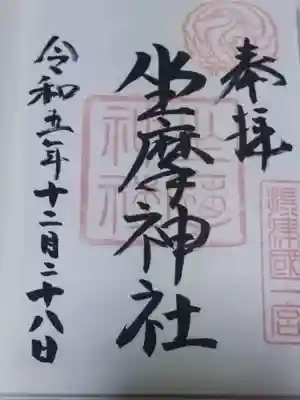 奉拝
摂津國一宮
坐摩神社
令和五年十二月二十八日